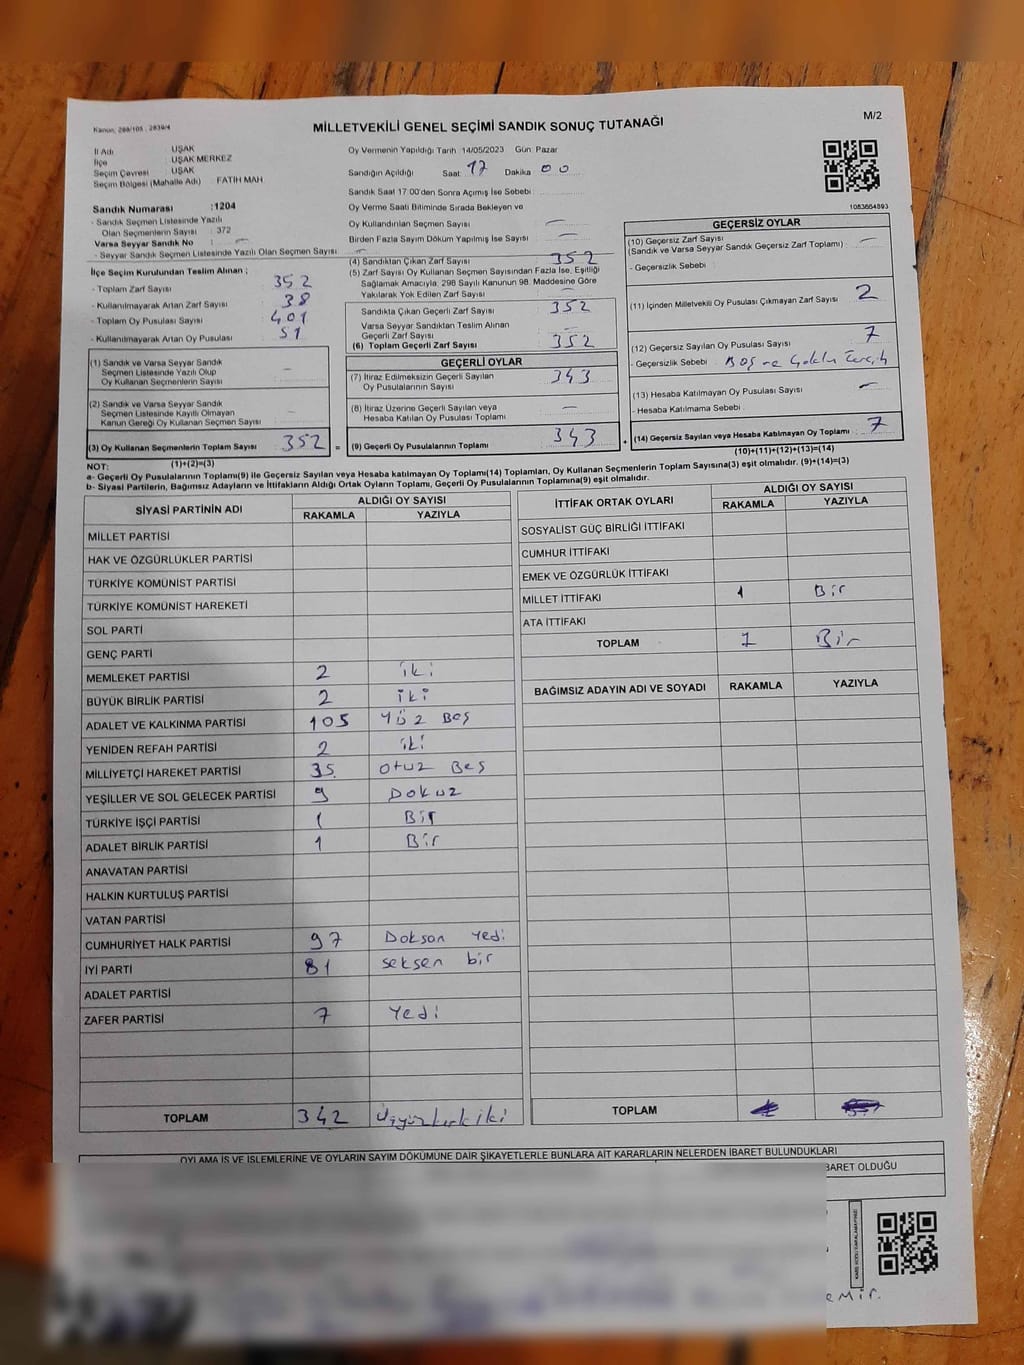 Kanun, 298/105 , 2839/4
M/2
MİLLETVEKİLİ GENEL SEÇİMİ SANDIK SONUÇ TUTANAĞI
İl Adı UŞAK
İlçe UŞAK MERKEZ
Seçim Çevresi UŞAK
Seçim Bölgesi (Mahalle Adı) FATİH MAH
Sandık Numarası :1204
- Sandık Seçmen Listesinde Yazılı
Olan Seçmenlerin Sayısı : 372
Varsa Seyyar Sandık No : —
- Seyyar Sandık Seçmen Listesinde Yazılı Olan Seçmen Sayısı —
İlçe Seçim Kurulundan Teslim Alınan ;
- Toplam Zarf Sayısı : 352
- Kullanılmayarak Artan Zarf Sayısı : 38
- Toplam Oy Pusulası Sayısı : 401
- Kullanılmayarak Artan Oy Pusulası : 51
(1) Sandık ve Varsa Seyyar Sandık
Seçmen Listesinde Yazılı Olup
Oy Kullanan Seçmenlerin Sayısı : —
(2) Sandık ve Varsa Seyyar Sandık
Seçmen Listesinde Kayıtlı Olmayan
Kanun Gereği Oy Kullanan Seçmen Sayısı : —
(3) Oy Kullanan Seçmenlerin Toplam Sayısı : 352 =
(1)+(2)=(3)
Oy Vermenin Yapıldığı Tarih 14/05/2023 Gün: Pazar
Sandığın Açıldığı Saat : 17 Dakika : 00
Sandık Saat 17.00'den Sonra Açılmış İse Sebebi :
Oy Verme Saati Bitiminde Sırada Bekleyen ve
Oy Kullandırılan Seçmen Sayısı : —
Birden Fazla Sayım Döküm Yapılmış İse Sayısı : —
(4) Sandıktan Çıkan Zarf Sayısı : 352
(5) Zarf Sayısı Oy Kullanan Seçmen Sayısından Fazla İse, Eşitliği
Sağlamak Amacıyla, 298 Sayılı Kanunun 98. Maddesine Göre
Yakılarak Yok Edilen Zarf Sayısı : —
Sandıkta Çıkan Geçerli Zarf Sayısı : 352
Varsa Seyyar Sandıktan Teslim Alınan
Geçerli Zarf Sayısı : —
(6) Toplam Geçerli Zarf Sayısı : 352
GEÇERLİ OYLAR
(7) İtiraz Edilmeksizin Geçerli Sayılan
Oy Pusulalarının Sayısı : 343
(8) İtiraz Üzerine Geçerli Sayılan veya
Hesaba Katılan Oy Pusulası Toplamı : —
(9) Geçerli Oy Pusulalarının Toplamı : 343 +
1083664893
GEÇERSİZ OYLAR
(10) Geçersiz Zarf Sayısı : —
(Sandık ve Varsa Seyyar Sandık Geçersiz Zarf Toplamı)
- Geçersizlik Sebebi :
(11) İçinden Milletvekili Oy Pusulası Çıkmayan Zarf Sayısı : 2
(12) Geçersiz Sayılan Oy Pusulası Sayısı : 7
- Geçersizlik Sebebi : Boş ve Çoklu Tercih
(13) Hesaba Katılmayan Oy Pusulası Sayısı : —
- Hesaba Katılmama Sebebi :
(14) Geçersiz Sayılan veya Hesaba Katılmayan Oy Toplamı : 7
(10)+(11)+(12)+(13)=(14)
NOT:
a- Geçerli Oy Pusulalarının Toplamı(9) ile Geçersiz Sayılan veya Hesaba katılmayan Oy Toplamı(14) Toplamları, Oy Kullanan Seçmenlerin Toplam Sayısına(3) eşit olmalıdır. (9)+(14)=(3)
b- Siyasi Partilerin, Bağımsız Adayların ve İttifakların Aldığı Ortak Oyların Toplamı, Geçerli Oy Pusulalarının Toplamına(9) eşit olmalıdır.
SİYASİ PARTİNİN ADI ALDIĞI OY SAYISI
RAKAMLA YAZIYLA
MİLLET PARTİSİ
HAK VE ÖZGÜRLÜKLER PARTİSİ
TÜRKİYE KOMÜNİST PARTİSİ
TÜRKİYE KOMÜNİST HAREKETİ
SOL PARTİ
GENÇ PARTİ
MEMLEKET PARTİSİ 2 iki
BÜYÜK BİRLİK PARTİSİ 2 iki
ADALET VE KALKINMA PARTİSİ 105 Yüz Beş
YENİDEN REFAH PARTİSİ 2 iki
MİLLİYETÇİ HAREKET PARTİSİ 35 otuz Beş
YEŞİLLER VE SOL GELECEK PARTİSİ 9 Dokuz
TÜRKİYE İŞÇİ PARTİSİ 1 Bir
ADALET BİRLİK PARTİSİ 1 Bir
ANAVATAN PARTİSİ
HALKIN KURTULUŞ PARTİSİ
VATAN PARTİSİ
CUMHURİYET HALK PARTİSİ 97 Doksan Yedi
İYİ PARTİ 81 seksen bir
ADALET PARTİSİ
ZAFER PARTİSİ 7 Yedi
TOPLAM 342 Üçyüzkırkiki
İTTİFAK ORTAK OYLARI ALDIĞI OY SAYISI
RAKAMLA YAZIYLA
SOSYALİST GÜÇ BİRLİĞİ İTTİFAKI
CUMHUR İTTİFAKI
EMEK VE ÖZGÜRLÜK İTTİFAKI
MİLLET İTTİFAKI 1 Bir
ATA İTTİFAKI
TOPLAM 1 Bir
BAĞIMSIZ ADAYIN ADI VE SOYADI RAKAMLA YAZIYLA
TOPLAM
OYLAMA İŞ VE İŞLEMLERİNE VE OYLARIN SAYIM DÖKÜMÜNE DAİR ŞİKAYETLERLE BUNLARA AİT KARARLARIN NELERDEN İBARET BULUNDUKLARI
BARET OLDUĞU